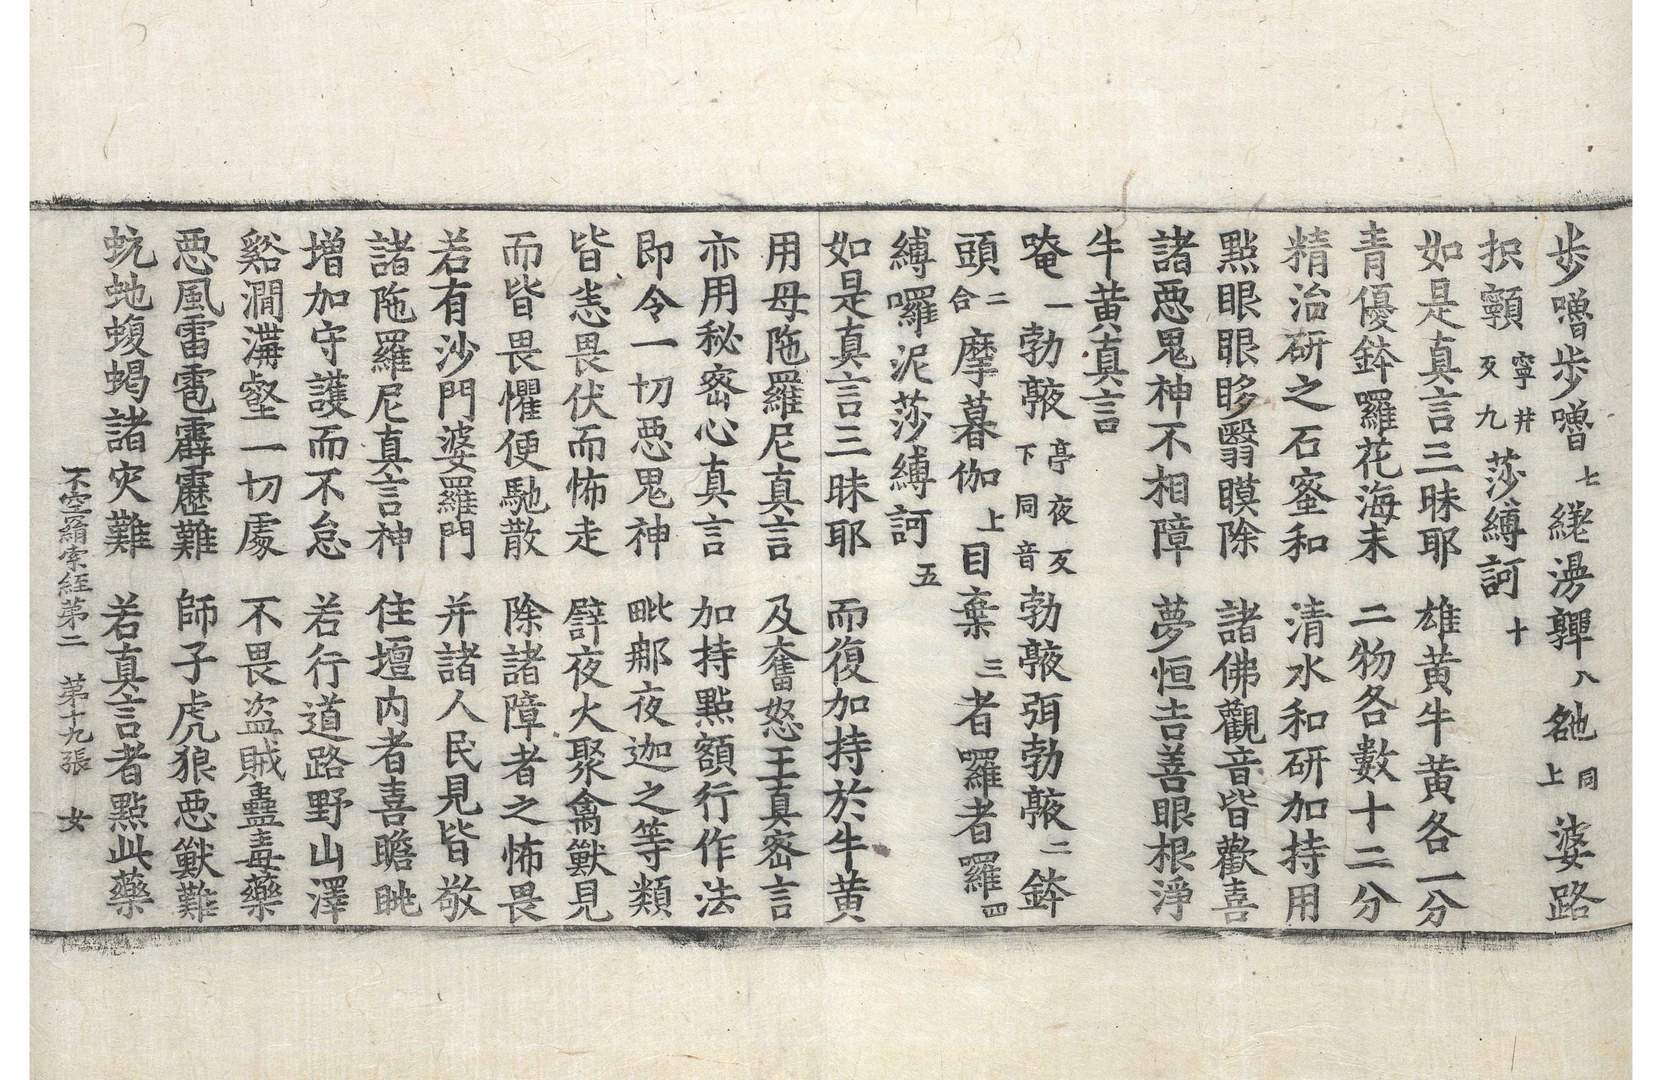 步噜步噜七繼𣵀嚲八𦀇同上婆路
抧顙寧井反九莎縛訶十
如是真言三昧耶　雄黄牛黄各一分
青優鉢羅花海末　二物各數十二分
精治研之石蜜和　清水和研加持用
點眼眼眵翳瞙除　諸佛觀音皆歡喜
諸惡鬼神不相障　夢恒吉善眼根淨
牛黄真言
唵一勃𨄔亭夜反下同音勃𨄔弭勃𨄔二鉢
頭二合摩暮伽上目棄三者囉者囉四
縛囉泥莎縛訶五
如是真言三昧耶　而復加持於牛黄
用母陁羅尼真言　及奮怒王真密言
亦用秘密心真言　加持點額行作法
即令一切惡鬼神　毗那夜迦之等類
皆恙畏伏而怖走　譬夜火聚禽獸見
而皆畏懼便馳散　除諸障者之怖畏
若有沙門婆羅門　并諸人民見皆敬
諸陁羅尼真言神　住壇内者喜瞻眺
增加守護而不怠　若行道路野山澤
谿澗溝壑一切處　不畏盗賊蠱毒藥
惡風雷雹霹靂難　師子虎狼惡獸難
蚖虵蝮蝎諸灾難　若真言者點此藥
不空羂索經第二　第十九張　女